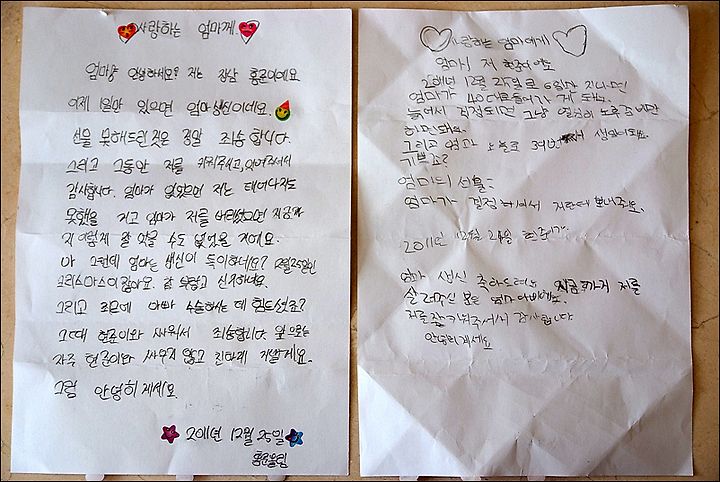 사랑하는 엄마께
엄마 안녕하세요? 저는 장남 홍준이에요
이제 1일만 있으면 엄마생신이네요.
선물 못해드린것은 정말 죄송합니다.
그리고 그동안 저를 키워주시고,
감사합니다. 엄마가 없었으면 저는 태어나지도
못했을 거고 엄마가 저를 버리셨으면 지금까
지 이렇게 잘 있을 수도 없었을 거에요.
아 그런데 엄마는 생신이 특이하네요? 12월25일인
크리스마스이잖아요. 참 놀랍고 신기하네요.
그리고 최근에 아빠 수술하시는 데 힘드셨죠?
그때 현준이와 싸워서 죄송합니다. 앞으로는
자주 현준이와 싸우지 않고 친하게 지낼게요.
그럼 안녕히계세요.
2011년 12월 25일
홍준올림
사랑하는 엄마에게
엄마! 저 현준이에요
2011년 12월 25일로 6일만 지나면
엄마가 40 되요.
늙어서 걱정되면 그냥 열심히 노력하기만
하면돼요.
그리고 엄마 오늘로 39번째 생일이네요
기쁘죠?
엄마의 선물:
엄마가 결정해서 저한테 보내주세요.
2011년 12월 24일 현준가
엄마 생신 축하드려요 지금까지 저를
살려주신 분은 엄마아빠에요.
저를 잘키워주셔서 감사합니다
안녕히계세요